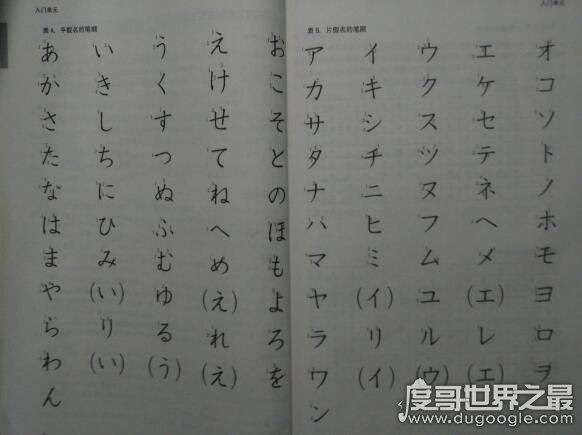 入门单元
表 4. 平假名的笔顺
あ い う え お
か き く け こ
さ し す せ そ
た ち つ て と
な に ぬ ね の
は ひ ふ へ ほ
ま み む め も
や (い) ゆ (え) よ
ら り る れ ろ
わ (い) (う) (え) を
ん
入门单元
表 5. 片假名的笔顺
ア イ ウ エ オ
カ キ ク ケ コ
サ シ ス セ ソ
タ チ ツ テ ト
ナ ニ ヌ ネ ノ
ハ ヒ フ ヘ ホ
マ ミ ム メ モ
ヤ (イ) ユ (エ) ヨ
ラ リ ル レ ロ
ワ (イ) (ウ) (エ) ヲ
ン
度哥世界之最
www.dugoogle.com